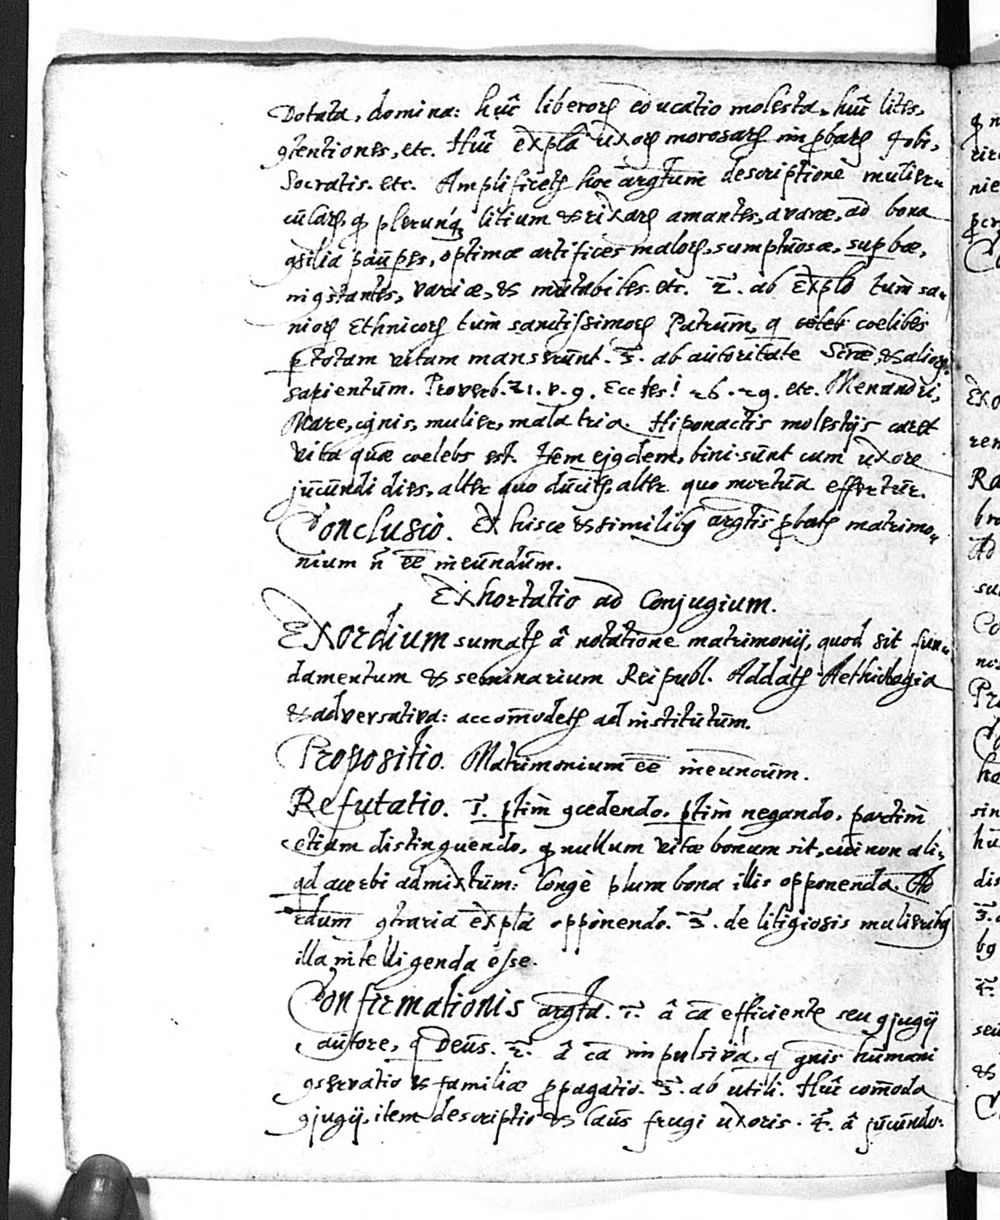 Dotata, domina: hûc liberorꝝ educatio molesta, hûc lites,
ꝯtentiones, etc. Hûc exp̃la uxorꝝ morosarꝝ improbarꝝ
Socratis. etc. Amplificetꝛ hoc argt̃um descriptione mulier-
cularꝝ, ꝙ plerunq́ꝫ litium & rixarꝝ amantes, avaræ, ad bona
ꝯsilia pauperes, optimæ artifices malorꝝ, sumptuosæ, sup̱bæ,
inꝯstantes, variæ, & mutabiles. etc. 2. ab exp̃lo tum sa-
niorꝝ Ethnicorꝝ tum sanctissimorꝝ Patrum, q coelibes
ꝑ totam vitam manserunt. 3. ab autoritate Scræ, & aliorꝝ
sapientum. Proverb. 21. v. 9. Eccles. 26. 29. etc. Menandri,
Mare, ignis, mulier, mala tria. Hiponactis molestijs caret
vita quæ coelebs est. Item ejꝰdem, bini sunt cum uxore
jucundi dies, alter quo ducitꝛ, alter quo mortua effertur.
Conclusio. Ex hisce & similibꝰ argt̃is ꝓbatꝛ matrimo-
nium n̄ ee͞ ineundum.
Exhortatio ad Conjugium.
Exordium sumatꝛ â notatione matrimonij, quod sit fun-
damentum & seminarium Reipubl. Addatꝛ Aethiologia
& adversativa: accom̄odetꝛ ad institutum.
Propositio. Matrimonium ee͞ ineundum.
Refutatio. 1. ꝑtim ꝯcedendo, ꝑtim negando, partim
etiam distinguendo, ꝙ nullum vitæ bonum sit, cui non ali-
qd acerbi admixtum: longè plura bona illis opponenda. Ad
2dum ꝯtraria exp̃la opponendo. 3. de litigiosis mulieribꝰ
illa intelligenda esse.
Confirmationis argt̃a. 1. â ca͞ efficiente seu ꝯjugij
autore, q Deus. 2. â ca͞ impulsiva, q gn̄is humani
ꝯservatio & familiæ ꝓpagatio. 3. ab utili. Hûc com̄oda
ꝯjugij, item descriptio & laus frugi uxoris. 4. â jucundo.